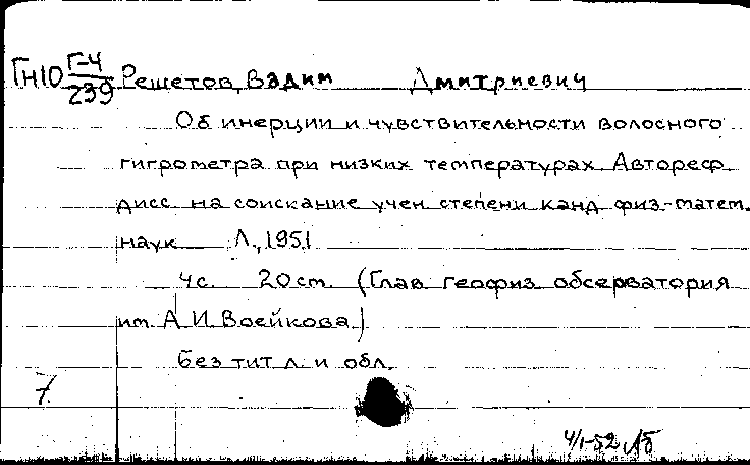 ГН10 Г-4/239 Решетов, Вадим Дмитриевич
Об инерции и чувствительности волосного
гигрометра при низких температурах. Автореф.
дисс. на соискание учен. степени канд. физ-матем.
наук Л., 1951
4с. 20 ст. (Глав. геофиз. обсерватория
им. А.И. Воейкова)
Без тит. л. и обл.
7.
4/I-52